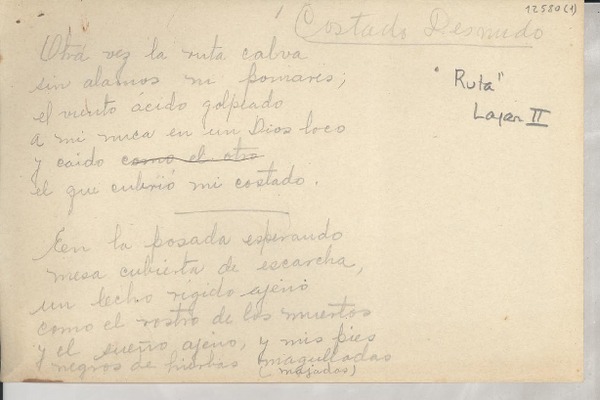 12580(1)
Costado Desnudo
Otra vez la ruta calva
sin alamos ni pomares;
el viento ácido golpeado
a mi nuca en un Dios loco
y caido como el otro
el que cubrió mi costado.
"Ruta"
Lagar II
En la posada esperando
mesa cubierta de escarcha,
un lecho rigido ajeno
como el rostro de los muertos
y el sueño ajeno, y mis pies
negros de hierbas magulladas
(majadas)